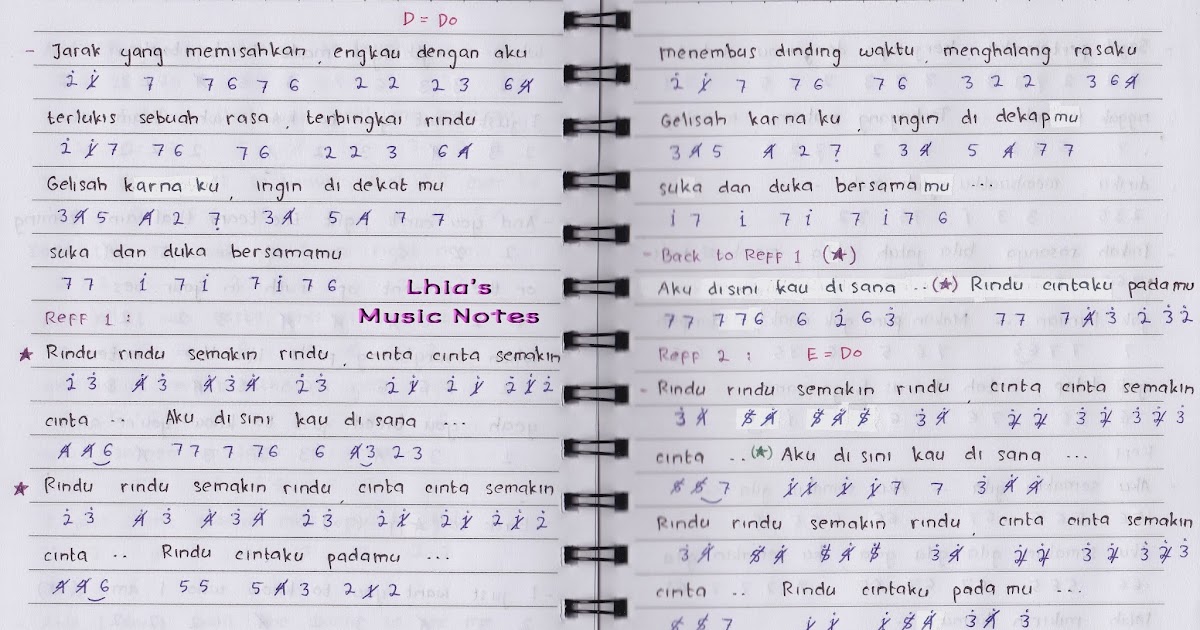 D = Do
- Jarak yang memisahkan, engkau dengan aku
2̇ 1̸̇ 7 7 6 7 6 2 2 2 3 6 4̸
terlukis sebuah rasa, terbingkai rindu
2̇ 1̸̇ 7 7 6 7 6 2 2 3 6 4̸
Gelisah karna ku, ingin di dekat mu
3 4̸ 5 4̸ 2 7̣ 3 4̸ 5 4̸ 7 7
suka dan duka bersamamu
7 7 1̇ 7 1̇ 7 1̇ 7 6
Lhia's
Music Notes
Reff 1 :
★ Rindu rindu semakin rindu, cinta cinta semakin
2̇ 3̇ 4̸̇ 3̇ 4̸̇ 3̇ 4̸̇ 2̇ 3̇ 2̇ 1̸̇ 2̇ 1̸̇ 2̇ 1̸̇ 2̇
cinta .. Aku di sini kau di sana ...
4̸ 4̸ 6 7 7 7 7 6 6 4̸ 3 2 3
★ Rindu rindu semakin rindu, cinta cinta semakin
2̇ 3̇ 4̸̇ 3̇ 4̸̇ 3̇ 4̸̇ 2̇ 3̇ 2̇ 1̸̇ 2̇ 1̸̇ 2̇ 1̸̇ 2̇
cinta .. Rindu cintaku padamu ...
4̸ 4̸ 6 5 5 5 4̸ 3 2 1̸ 2
menembus dinding waktu, menghalang rasaku
2̇ 1̸̇ 7 7 6 7 6 3 2 2 3 6 4̸
Gelisah karna ku, ingin di dekapmu
3 4̸ 5 4̸ 2 7̣ 3 4̸ 5 4̸ 7 7
suka dan duka bersamamu ....
1̇ 7 1̇ 7 1̇ 7 1̇ 7 6
- Back to Reff 1 (★)
Aku disini kau di sana ..(★) Rindu cintaku padamu
7 7 7 7 6 6 2̇ 6 3̇ 7 7 7 4̸̇ 3̇ 2̇ 3̇ 2̇
Reff 2 : E = Do
- Rindu rindu semakin rindu, cinta cinta semakin
3̇ 4̸̇ 5̸̇ 4̸̇ 5̸̇ 4̸̇ 5̸̇ 3̇ 4̸̇ 2̸̇ 2̸̇ 3̇ 2̸̇ 3̇ 2̸̇ 3̇
cinta ..(★) Aku di sini kau di sana ...
5̸ 5̸ 7 1̸̇ 1̸̇ 1̸̇ 1̸̇ 7 7 3̇ 4̸̇ 4̸̇
Rindu rindu semakin rindu, cinta cinta semakin
3̇ 4̸̇ 5̸̇ 4̸̇ 5̸̇ 4̸̇ 5̸̇ 3̇ 4̸̇ 2̸̇ 2̸̇ 3̇ 2̸̇ 3̇ 2̸̇ 3̇
cinta .. Rindu cintaku pada mu ...
5̸ 5̸ 7 1̸̇ 1̸̇ 5̸̇ 4̸̇ 3̇ 4̸̇ 3̇